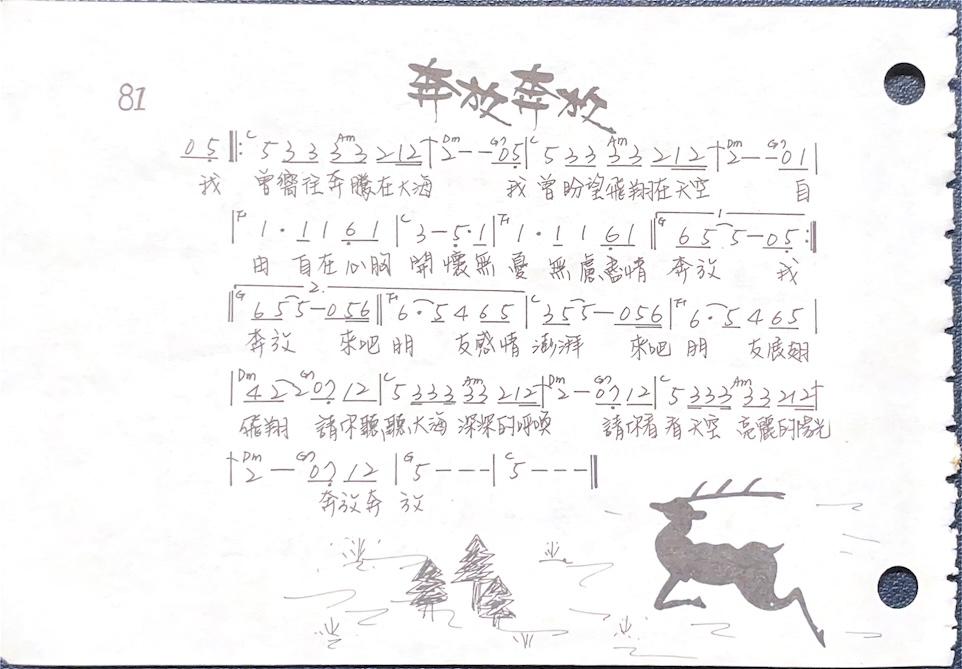 奔放奔放
81
05 ‖: C 5 3 3 Am 3 3 2 12 | Dm 2 - - G7 05 | C 5 3 3 Am 3 3 2 12 | Dm 2 - - G7 01 |
我 曾嚮往奔騰在大海 我曾盼望飛翔在天空 自
| F 1 · 1 1 6 1 | C 3 - 5 · 1 | F 1 · 1 1 6 1 ‖ G 1. 6 5 5 - 0 5 :‖
由 自在心胸 開懷無憂 無慮盡情 奔放 我
‖ G 2. 6 5 5 - 0 5 6 ‖ F 6 · 5 4 6 5 | C 3 5 5 - 0 5 6 | F 6 · 5 4 6 5 |
奔放 來吧朋 友感情澎湃 來吧朋 友展翅
| Dm 4 2 2 G7 0 7 1 2 | C 5 3 3 3 Am 3 3 2 1 2 | Dm 2 - G7 0 7 1 2 | C 5 3 3 3 Am 3 3 2 1 2 |
飛翔 請你聽聽大海 深深的呼喚 請你看看天空 亮麗的陽光
| Dm 2 - G7 0 7 1 2 | G 5 - - - | C 5 - - - ‖
奔放奔 放